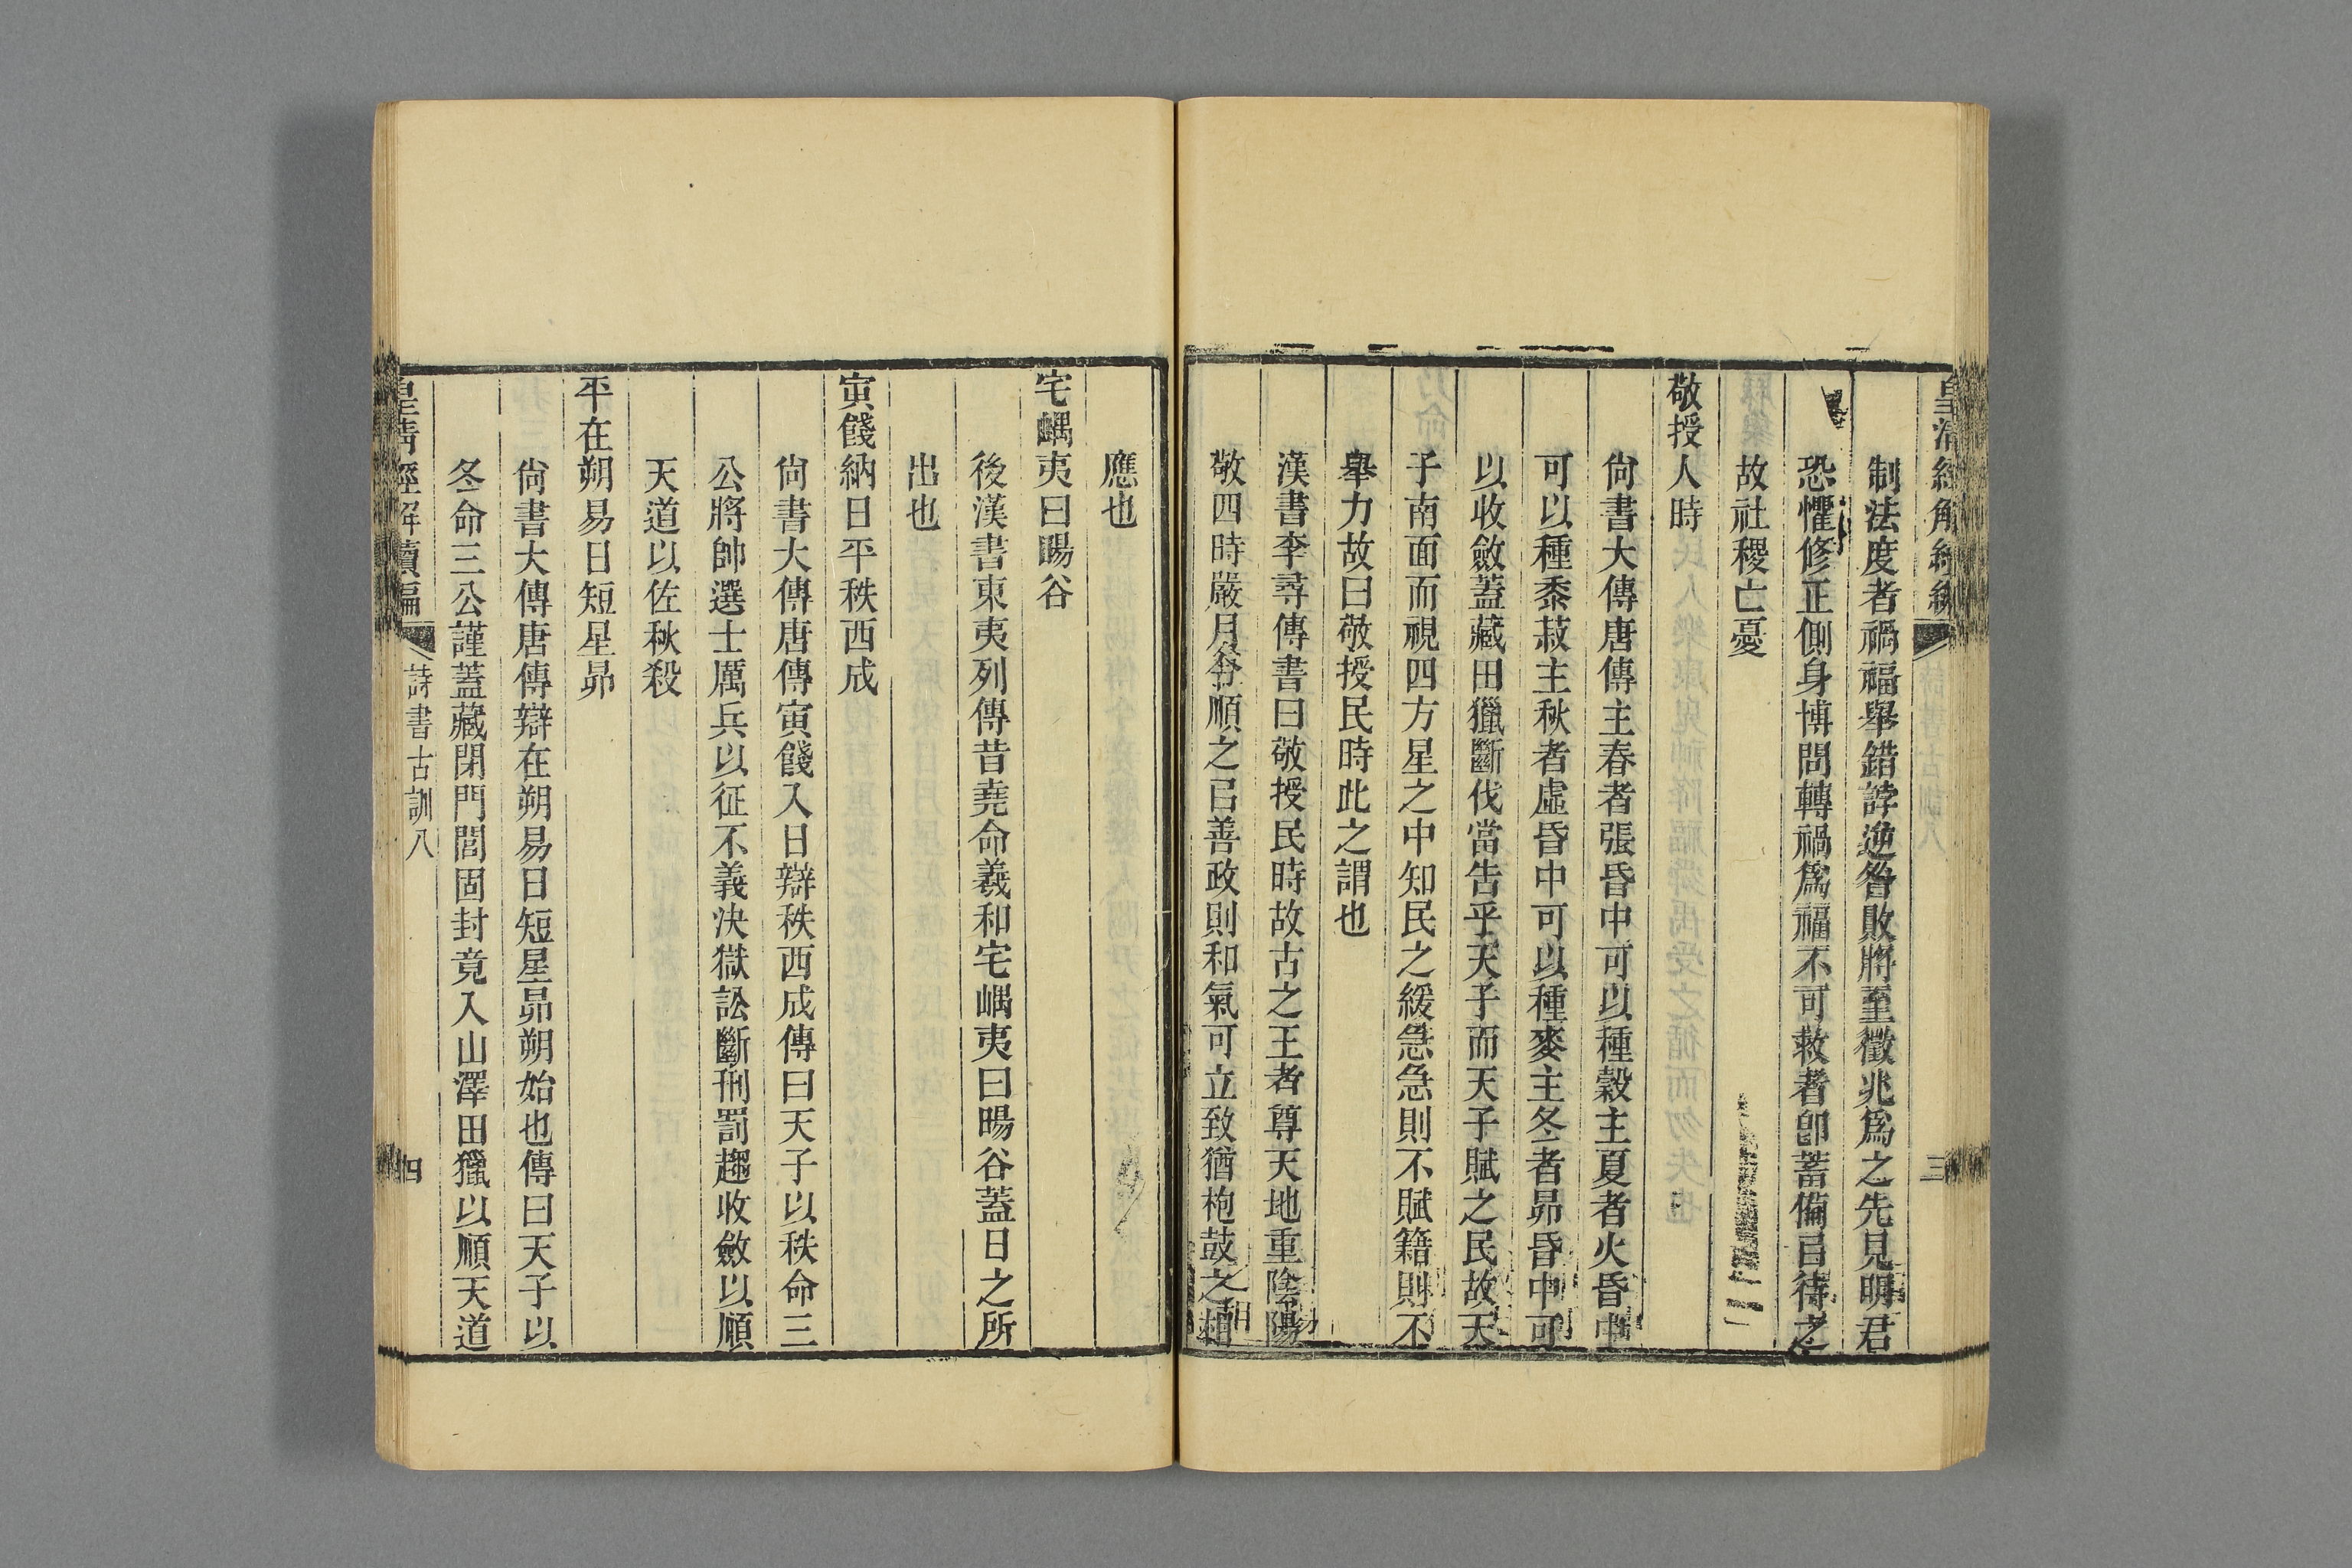 皇清經解續編
三
制法度者禍福舉錯誖逆咎敗將至徵兆爲之先見明君
恐懼修正側身博問轉禍爲福不可救者卽蓄備㠯待之
故社稷亡憂
敬授人時
尙書大傳唐傳主春者張昏中可以種穀主夏者火昏中
可以種黍菽主秋者虛昏中可以種麥主冬者昴昏中可
以收斂蓋藏田獵斷伐當告乎天子而天子賦之民故天
子南面而視四方星之中知民之緩急急則不賦籍則不
舉力故曰敬授民時此之謂也
漢書李尋傳書曰敬授民時故古之王者尊天地重陰陽
敬四時嚴月令順之㠯善政則和氣可立致猶枹鼓之相
應也
宅嵎夷曰暘谷
後漢書東夷列傳昔堯命羲和宅嵎夷曰暘谷蓋日之所
出也
寅餞納日平秩西成
尙書大傳唐傳寅餞入日辯秩西成傳曰天子以秋命三
公將帥選士厲兵以征不義決獄訟斷刑罰趨收斂以順
天道以佐秋殺
平在朔易日短星昴
尙書大傳唐傳辯在朔易日短星昴朔始也傳曰天子以
冬命三公謹蓋藏閉門閭固封竟入山澤田獵以順天道
皇淸經解續編
詩書古訓八
四